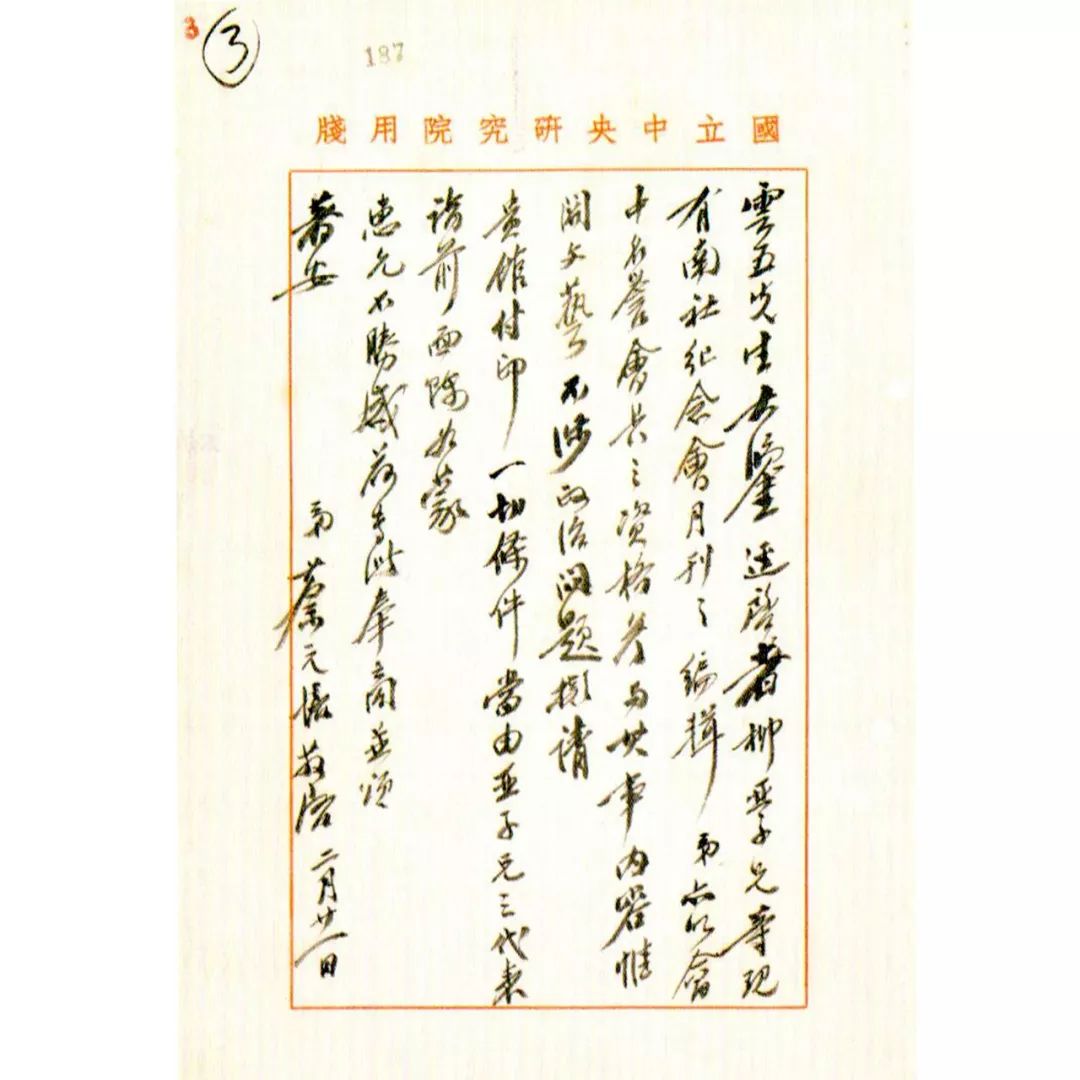 3
3
187
國立中央研究院用牋
雲五先生大鑒逕啓者柳亞子兄等現
有南社紀念會月刊之編輯弟亦以會
中名譽會長之資格參与其事內容惟
關文藝不涉政治問題擬請
貴館付印一切條件當由亞子兄之代表
詣前面陳如蒙
惠允不勝感荷專此奉商並頌
著安
弟蔡元培敬啓 二月廿一日